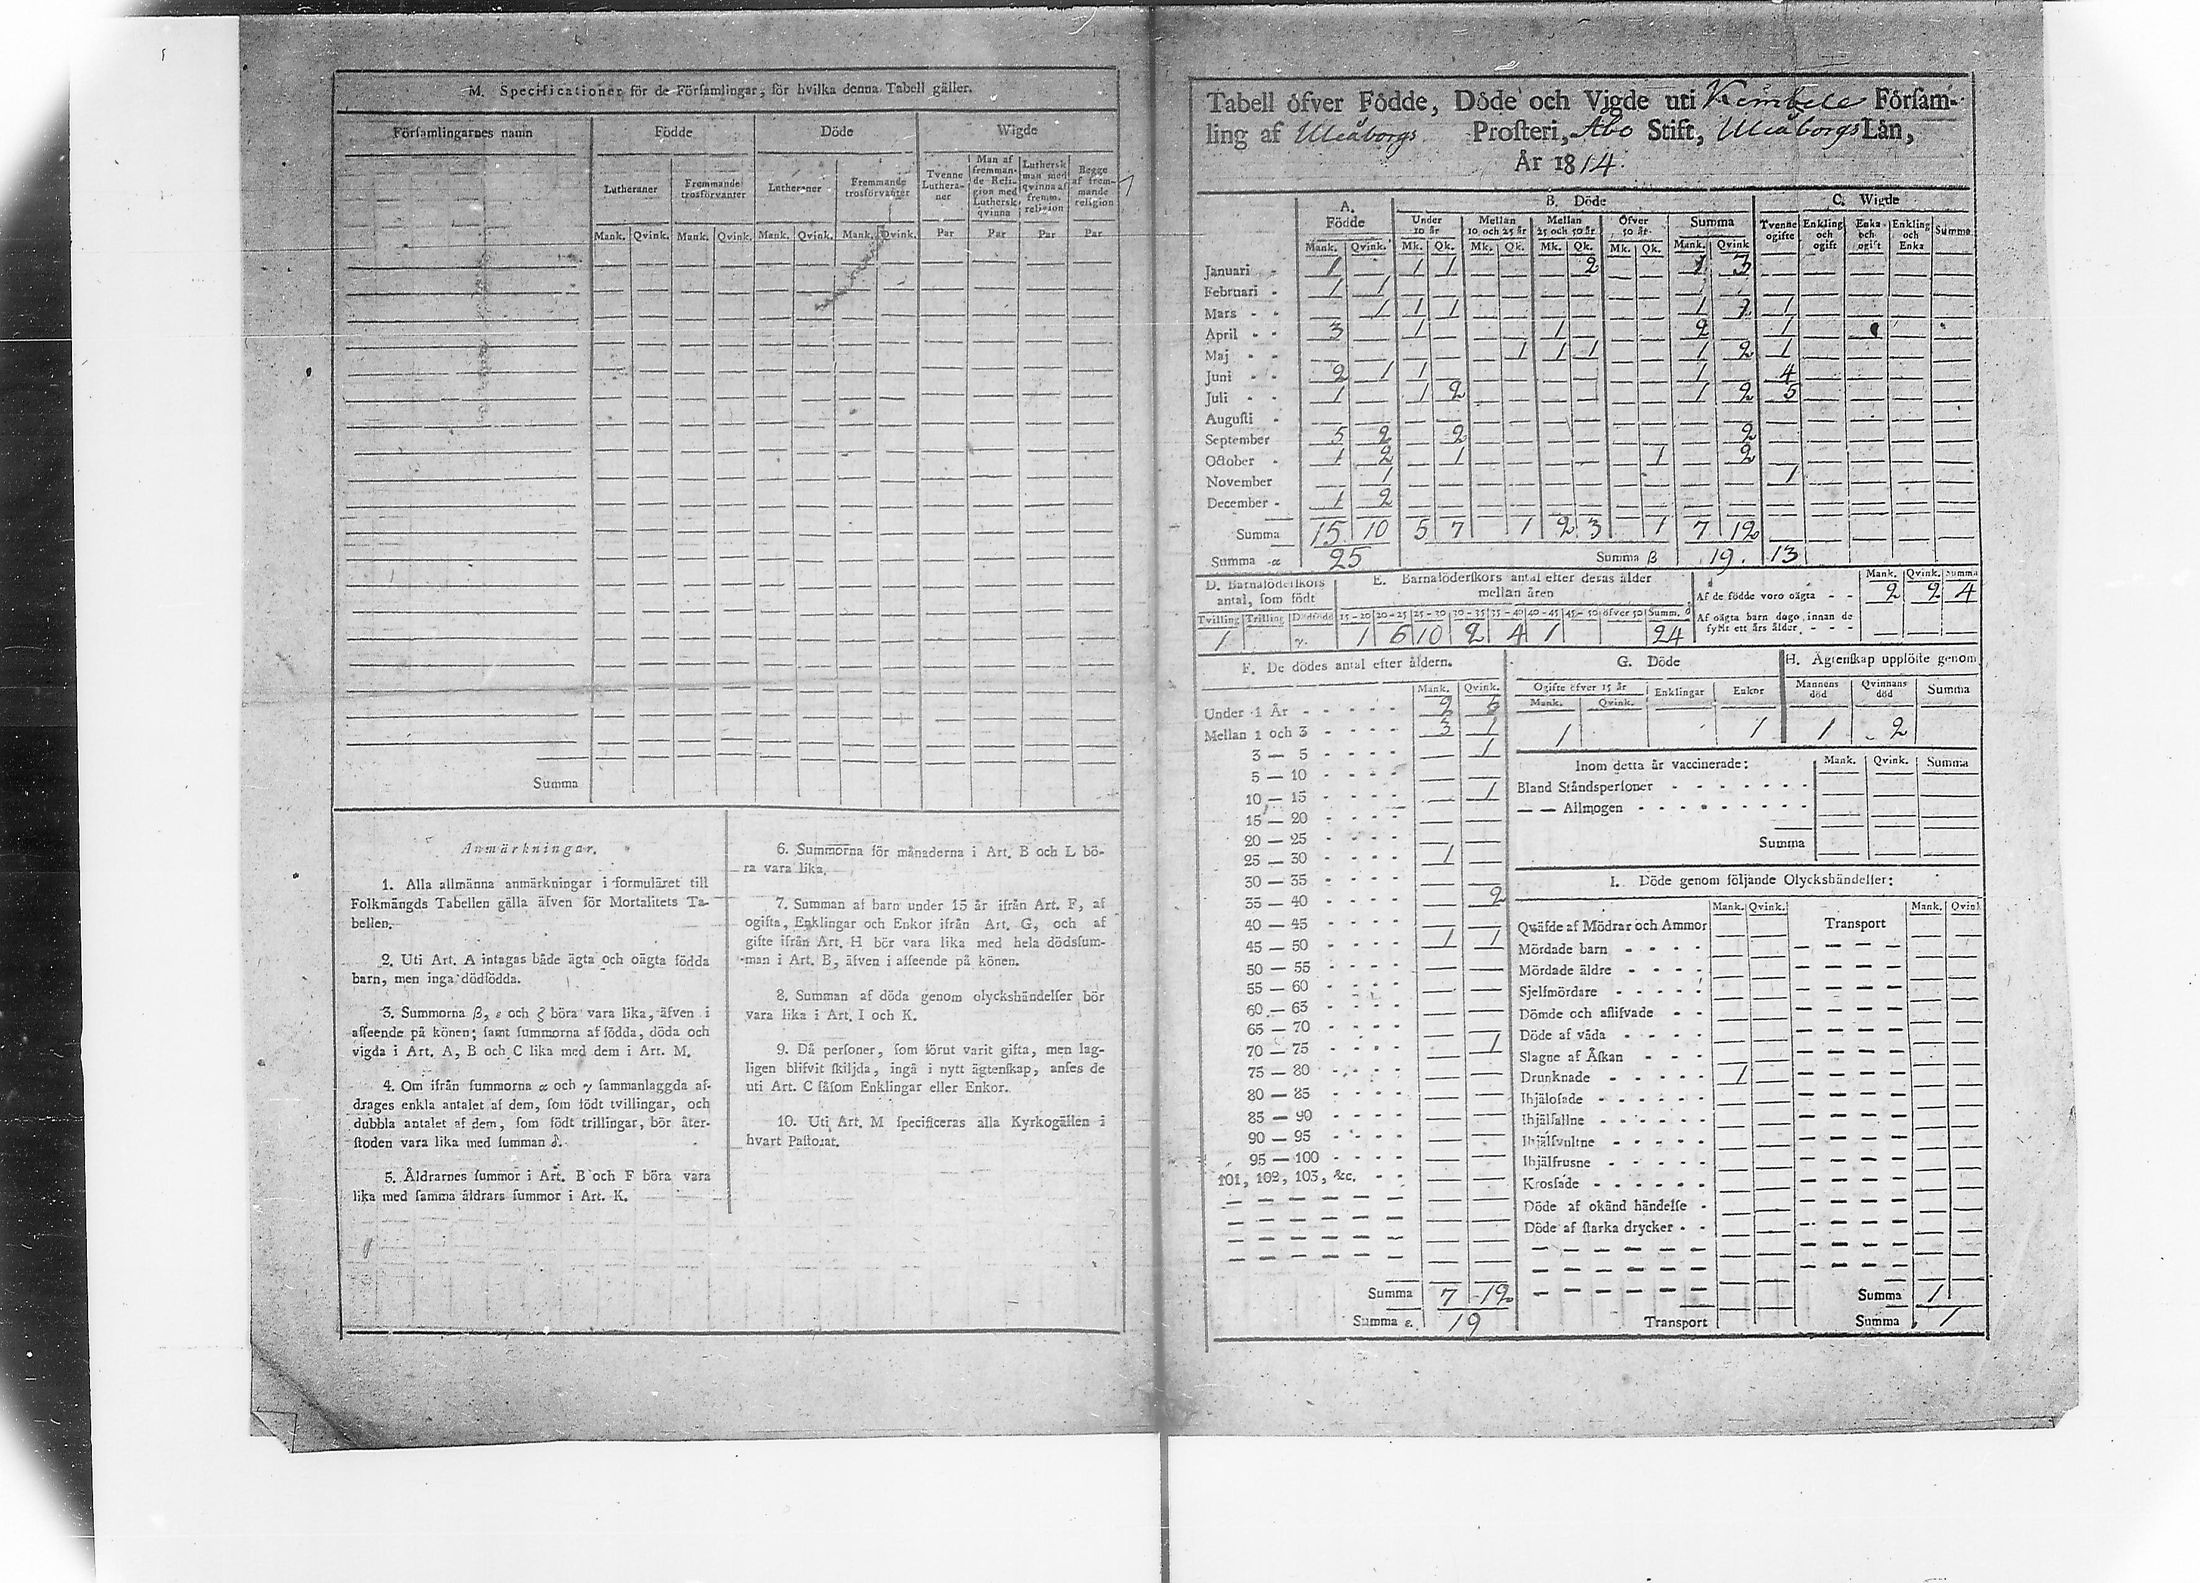 M. Specificationer för de Församlingar, för hvilka denna Tabell gäller.
Församlingarnes namn Födde Döde Wigde
Lutheraner Fremmande trosförvanter Lutheraner Fremmande trosförvanter Tvenne Lutheraner Man af fremmande Religion med Luthersk qvinna Luthersk man med qvinna af fremm. religion Begge af fremmande religion
Mank. Qvink. Mank. Qvink. Mank. Qvink. Mank. Qvink. Par Par Par Par
Summa
Anmärkningar.
1. Alla allmänna anmärkningar i formuläret till
Folkmängds Tabellen gälla äfven för Mortalitets Ta-
bellen.
2. Uti Art. A intagas både ägta och oägta födda
barn, men inga dödfödda.
3. Summorna β, ε och ζ böra vara lika, äfven i
afseende på könen; samt summorna af födda, döda och
vigda i Art. A, B och C lika med dem i Art. M.
4. Om ifrån summorna α och γ sammanlaggda af-
drages enkla antalet af dem, som födt tvillingar, och
dubbla antalet af dem, som födt trillingar, bör åter-
stoden vara lika med summan δ.
5. Åldrarnes summor i Art. B och F böra vara
lika med samma åldrars summor i Art. K.
6. Summorna för månaderna i Art. B och L bö-
ra vara lika.
7. Summan af barn under 15 år ifrån Art. F, af
ogifta, Enklingar och Enkor ifrån Art. G, och af
gifte ifrån Art. H bör vara lika med hela dödssum-
man i Art. B, äfven i afseende på könen.
8. Summan af döda genom olyckshändelser bör
vara lika i Art. I och K.
9. Då personer, som förut varit gifta, men lag-
ligen blifvit skiljda, ingå i nytt ägtenskap, anses de
uti Art. C såsom Enklingar eller Enkor.
10. Uti Art. M specificeras alla Kyrkogällen i
hvart Pastorat.
Tabell öfver Födde, Döde och Vigde uti Kembele Försam-
ling af Uleåborgs Prosteri, Åbo Stift, Uleåborgs Län,
År 1814.
A. Födde B. Döde C. Wigde
Under 10 år Mellan 10 och 25 år Mellan 25 och 50 år Öfver 50 år Summa Tvenne ogifte Enkling och ogift Enka och ogift Enkling och Enka Summa
Mank. Qvink. Mk. Qk. Mk. Qk. Mk. Qk. Mk. Qk. Mank. Qvink
Januari 1 1 1 2 1 3
Februari 1 1
Mars 1 1 1 1 1
April 3 1 1 2 1
Maj 1 1 1 1 2 1
Juni 2 1 1 1 4
Juli 1 1 2 1 2 5
Augusti
September 5 2 2 2
October 1 2 1 1 2
November 1 1
December 1 2
Summa 15 10 5 7 1 2 3 1 7 12
Summa α 25 Summa β 19. 13
D. Barnaföderskors antal, som födt
Tvilling Trilling Dödfödd
1 γ.
E. Barnaföderskors antal efter deras ålder
mellan åren
15-20 20-25 25-30 30-35 35-40 40-45 45-50 öfver 50 Summ. δ
1 6 10 2 4 1 24
Mank. Qvink. Summa
Af de födde voro oägta 2 2 4
Af oägta barn dogo innan de
fyllt ett års ålder
F. De dödes antal efter åldern.
Mank. Qvink.
Under 1 År 2 5
Mellan 1 och 3 3 1
3 — 5 1
5 — 10
10 — 15 1
15 — 20
20 — 25
25 — 30 1
30 — 35
35 — 40 2
40 — 45
45 — 50 1 1
50 — 55
55 — 60
60 — 65
65 — 70
70 — 75 1
75 — 80
80 — 85
85 — 90
90 — 95
95 — 100
101, 102, 103, &c.
Summa 7 12
Summa ε. 19
G. Döde
Ogifte öfver 15 år Enklingar Enkor
Mank. Qvink.
1 1
H. Ägtenskap upplöste genom
Mannens död Qvinnans död Summa
1 2
Inom detta år vaccinerade: Mank. Qvink. Summa
Bland Ståndspersoner
— — Allmogen
Summa
I. Döde genom följande Olyckshändelser:
Mank. Qvink. Mank. Qvink
Qväfde af Mödrar och Ammor Transport
Mördade barn
Mördade äldre
Sjelfmördare
Dömde och aflifvade
Döde af våda
Slagne af Åskan
Drunknade 1
Ihjälosade
Ihjälfallne
Ihjälsvultne
Ihjälfrusne
Krossade
Döde af okänd händelse
Döde af starka drycker
Summa 1
Transport Summa 1